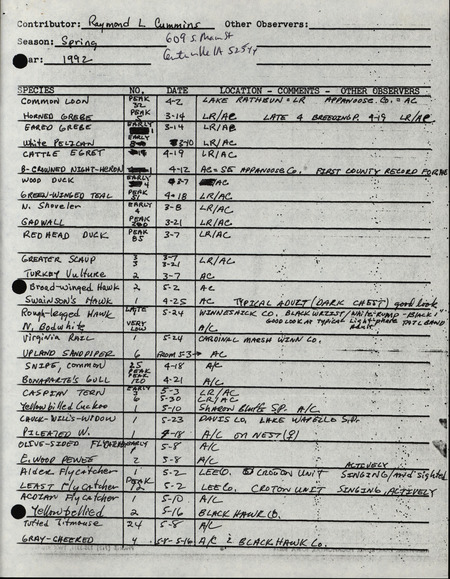 Contributor: Raymond L Cummins Other Observers:
Season: Spring 609 S. Main St
ar: 1992 Centerville IA 52544
SPECIES NO. DATE LOCATION - COMMENTS - OTHER OBSERVERS
COMMON LOON PEAK 32 4-2 LAKE RATHBUN = LR APPANOOSE. CO. = AC
HORNED GREBE PEAK 3-14 LR/AC LATE 4 BREEDING P. 4-19 LR/AC
EARED GREBE EARLY 3-14 LR/AC
White PELICAN EARLY LR/AC
CATTLE EGRET 4-19 LR/AC
B-CROWNED NIGHT-HERON 4-12 AC = SE APPANOOSE CO. FIRST COUNTY RECORD FOR ME
WOOD DUCK EARLY 4 3-7 AC
GREEN-WINGED TEAL PEAK 51 4-18 LR/AC
N. Shoveler EARLY 4 3-8 LR/AC
GADWALL PEAK 3-21 LR/AC
REDHEAD DUCK PEAK 85 3-7 LR/AC
GREATER SCAUP 3 3-7 LR/AC
3 3-21
TURKEY Vulture 2 3-7 AC
Broad-winged Hawk 2 5-2 AC
SWAINSON'S HAWK 1 4-25 AC TYPICAL ADULT (DARK CHEST) good look
Rough-legged HAWK LATE 1 5-24 WINNESHIEK CO. BLACK WRIST/WHITE RUMP - BLACK TAIL BAND
GOOD LOOK AT Typical Light-phase Adult
N. Bobwhite VERY LOW A/C
Virginia RAIL 1 5-24 CARDINAL MARSH WINN CO.
UPLAND SANDPIPER 6 FROM 5-3 → AC
SNIPE, COMMON 25 PEAK 4-18 A/C
BONAPARTE'S GULL PEAK 120 4-21 A/C
CASPIAN TERN EARLY 5-3 LR/AC
Yellow billed Cuckoo 6 5-30 LR/AC
5-10 Sharon Bluffs S.P. A/C
CHUCK-WILL'S-WIDOW 1 5-23 DAVIS CO. LAKE WAPELLO S.P.
PILEATED W. 1 4-18 A/C ON NEST (♀)
OLIVE-SIDED FLYCATCHER EARLY 1 5-8 A/C
E. WOOD PEWEE 5-8 A/C
Alder Flycatcher 1 5-2 LEE CO. CROTON UNIT ACTIVELY SINGING/and sighted
LEAST Flycatcher PEAK 12 5-2 LEE CO. CROTON UNIT SINGING, ACTIVELY
ACADIAN Flycatcher 1 5-10 A/C
Yellowbellied 2 5-16 BLACK HAWK CO.
Tufted Titmouse 24 5-8 A/C
GRAY-CHEEKED 4 5-8-5-16 A/C & BLACK HAWK CO.